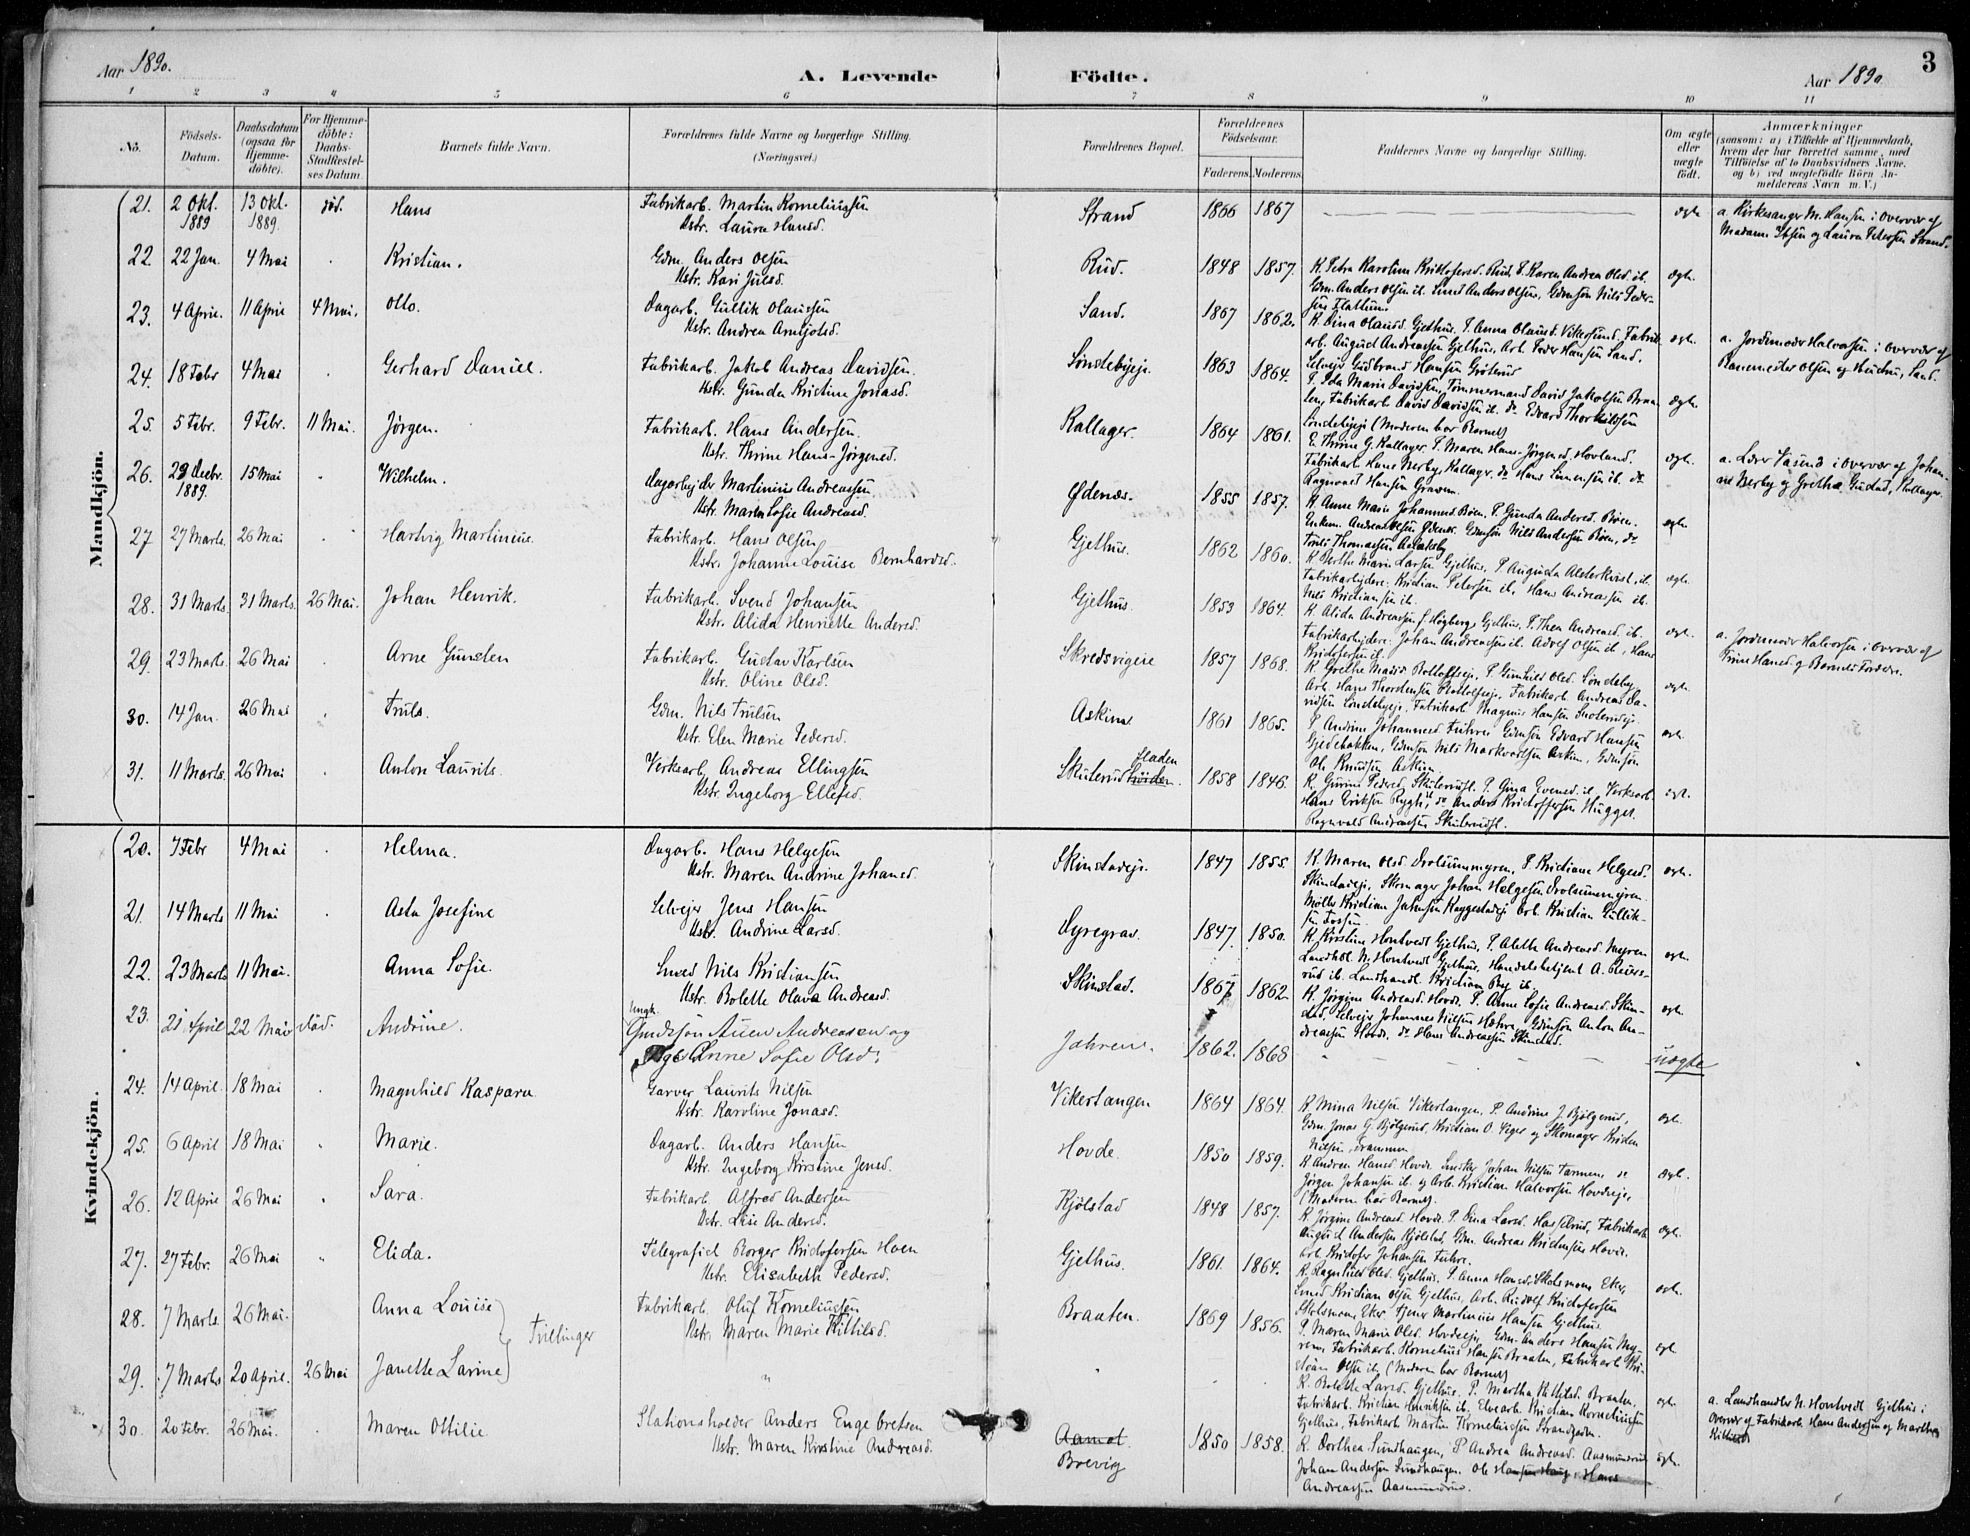 Aar 1890.
A. Levende
Födte.
Aar 1890
3
1 2 3 4 5 6 7 8 9 10 11
No.
Födsels-Datum.
Daabsdatum (ogsaa for Hjemme-döbte).
For Hjemme-döbte: Daabs-Stadfæstel-ses Datum.
Barnets fulde Navn.
Forældrenes fulde Navne og borgerlige Stilling. (Næringsvei.)
Forældrenes Bopæl.
Forældrenes Födselsaar.
Faderens. Moderens.
Faddernes Navne og borgerlige Stilling.
Om ægte eller uægte födt.
Anmærkninger
(saasom: a) i Tilfælde af Hjemmedaab, hvem der har forrettet samme, med Tilföielse af to Daabsvidners Navne. og b) ved uægtefödte Börn An-melderens Navn m. V.)
Mandkjön.
21. 2 Okt. 1889 13 Okt. 1889. död. Hans
Fabrikarb. Martin Korneliussen
Hstr. Laura Hansd.
Strand 1866 1867 ægte
a. Kirkesanger M. Hansen i Overvær af
Madame Ibsen og Laura Petersen Strand.
22. 22 Jan. 4 Mai Kristian.
Gdm. Anders Olsen
Hstr. Kari Julsd.
Rud. 1848 1857. ægte.
K. Petra Karoline Kristofersd. Rud. P. Karen Andrea Olsd. ib.
Gdm. Anders Olsen ib. Smed Anders Olsen, Gdmsön Nils Peder-
sen Flattum.
23. 4 April. 11 April 4 Mai. Otto.
Dagarb. Gullik Olaussen
Hstr. Andrea Arntsd.
Sand. 1867 1862. ægte.
K. Dina Olausd. Gjethus. P. Anna Olausd. Vikersund. Fabrik-
arb. August Andreassen Gjethus. Arb. Peder Hansen Sand.
Selvejer Gudbrand Hansen
a. Jordemoder Halvorsen i Overvær af
Banemester Olsen og Hustru, Sand.
24. 18 Febr 4 Mai Gerhard Daniel.
Fabrikarb. Jakob Andreas Davidsen.
Hstr. Gunda Kristine Jonasd.
Sönstebyeje. 1863 1864. ægte.
P. Ida Marie Davidsen, Tömmermand David Jakobsen Braa-
ten, Fabrikarb. David Davidsen ib. do Edvard Thorkildsen
Söndebyeje (Moderen bar Barnet)
25. 5 Febr. 9 Febr. 11 Mai. Jörgen.
Fabrikarb. Hans Andersen.
Hstr. Thrine Hans-Jörgensd.
Kallager. 1864 1861. ægte.
E. Thrine G. Kallager. P. Maren Hans-Jörgensd. Hovland.
Fabrikarb. Hans Nerby, Kallager. do Hans Simensen ib. do
Ragnvald Hansen Graven.
a. Lærer Vasend i Overvær af Johan-
ne Nerby og Grethe Gustad, Kallager.
26. 29 Decbr. 1889. 15 Mai Wilhelm.
Dagarbejder Martinius Andreassen
Hstr. Maren Sofie Andreasd.
Ödenæs. 1855 1857. ægte.
K. Anne Marie Johannesd. Böen, P. Gunda Andersd. Böen.
Enkem. Andreas Olsen Ödenes. Gdmsön Nils Andersen Böen, do
Truls Thomassen Aalaksby
27 27 Marts. 26 Mai Hartvig Martinius.
Fabrikarb. Hans Olsen
Hstr. Johanne Louise Bernhardsd.
Gjethus. 1862 1860. ægte.
K. Berthe Marie Larsen Gjethus, P. Augusta Alsterkvist, ib.
Fabrikarbejdere. Kristian Petersen ib, Hans Andreassen ib.
Nils Kristiansen ib.
28. 31 Marts 31 Marts. 26 Mai. Johan Henrik.
Fabrikarb. Svend Johansen
Hstr. Alida Henriette Andersd.
Gjethus. 1853 1864. ægte.
K. Alida Andreassen f. Högberg, Gjethus. P. Thea Andreasd. ib.
Fabrikarbejdere. Johan Andreassen ib. Adolf Olsen ib, Hans
Kristofersen ib.
a. Jordemoder Halvorsen i Overvær af
Trine Hansd. og Barnets Fader.
29. 23 Marts. 26 Mai Arne Gunsten
Fabrikarb. Gustav Karlsen
Hstr. Oline Olsd.
Skredsvigeie 1857 1868. ægte.
K Grethe Rolloffseje, P Gunhild Olsd. Söndeby,
Arb. Hans Thorstensen Rolloffseje, Fabrikarb Andreas Da-
vidsen Söndebyeje. Fabrikarb. Magnus Hansen
30. 14 Jan. 26 Mai Truls.
Gdm. Nils Trulsen
Hstr. Elen Marie Pedersd.
Askim 1861 1865. ægte.
P Andrine Johannesd. Fuhre Gdmsön Edvard Hansen
Gjedebakken, Gdmsön Nils Markvardsen Askim, Gdmsön
Ole Knudsen Askim
31. 11 Marts. 26 Mai Anton Laurits.
Verksarb. Andreas Ellingsen
Hstr. Ingeborg Ellefsd.
Skuterudfladen. 1858 1846. ægte.
K. Gurine Pedersd. Skuterudfl. P. Gina Evensd. ib, Verksarb.
Hans Eriksen Rygh ib, do Anders Kristoffersen Hugget.
Ragnvald Andreassen Skuterudfl.
Kvindekjön.
20. 7 Febr 4 Mai Helma.
Dagarb. Hans Helgesen
Hstr. Maren Andrine Johansd.
Skinstadeje. 1847 1855. ægte.
K. Maren Olsd. Drolsummyren, P Kristiane Helgesd.
Skinstadeje, Skomager Johan Helgesen Drolsummyren
Möller Kristian Jahnsen Kaggestadeje Arb. Kristian Gullik-
sen Fossen
21. 14 Marts 11 Mai Asta Josefine
Selvejer Jens Hansen
Hstr. Andrine Larsd.
Dyregrav. 1847. 1850. ægte.
K. Kirstine Hontvedt Gjethus, P. Alette Andreasd. Myren
Landhdl. N. Hontvedt Gjethus, Handelsbetjent A. Heiers-
rud ib. Landhandl. Kristian By ib.
22. 23 Marts 11 Mai. Anna Sofie.
Smed Nils Kristiansen
Hstr. Bolette Olava Andreasd.
Skinstad. 1867 1862. ægte.
K. Jörgine Andreasd. Hovde. P. Anne Sofie Andreasd. Skin-
stad, Selvejer Johannes Nilsen Hæhre, Gdmsön Anton An-
dreassen Hovde, do Hans Andreassen Skinstad.
23. 21 April 22 Mai död. Andrine.
Ungk. Gmdsön Auen Andreassen og
Pige Anne Sofie Olsd.
Jahren. 1862. 1868 uægte
24. 14 April. 18 Mai Magnhild Kaspara
Garver Laurits Nilsen
Hstr. Karoline Jonasd.
Vikertangen 1864 1864. ægte.
K. Mina Nilsen Vikertangen, P. Andrine J. Bjölgerud,
Gdm. Jonas G. Bjölgerud, Kristian O. Viger og Skomager Kristen
Nilsen, Drammen
25. 6 April 18 Mai Marie.
Dagarb. Anders Hansen
Hstr. Ingeborg Kirstine Jensd.
Hovde. 1850 1859. ægte.
K Andrea Hansd. Hovde. Johan Nilsen do
Jörgen Johansen ib. og Arb. Kristian Halvorsen Hovdeeje,
(Moderen bar Barnet)
26. 12 April 26 Mai Sara.
Fabrikarb. Alfred Andersen
Hstr. Lise Andersd.
Kjölstad 1848 1857. ægte.
K. Jörgine Andreasd. Hovde. P. Dina Larsd. Hasselrud, Fabrikarb
August Andersen Kjölstad, Gdm. Andreas Kristensen Hovde.
Arb. Kristofer Johansen Fuhre.
27. 27 Febr. 26 Mai Elida.
Telegrafist Borger Kristofersen Hoen
Hstr. Elisabeth Pedersd.
Gjethus. 1861. 1864. ægte.
K. Ragnhild Olsd. Gjethus, P. Anna Hansd. Skotsmoen Eker,
Smed Kristian Olsen Gjethus, Arb. Rudolf Kristofersen
Skotsmoen, Eker. Tjener Martinius Hansen Gjethus.
28. 7 Marts. 26 Mai. Anna Louise
Tvillinger
Fabrikarb. Oluf Korneliussen
Hstr. Maren Marie Kittilsd.
Braaten. 1869 1856. ægte.
P. Maren Marie Olsd. Hovdeeje, Gdm. Anders Hansen My-
ren, Fabrikarb. Kornelius Hansen Braaten, Fabrikarb. Kri-
stian Olsen ib. (Moderen bar Barnet)
29. 7 Marts 20 April. 26 Mai Janette Lavine
K. Bolette Larsd. Gjethus. P. Martha Kittilsd. Braaten,
Fabrikarb. Kristian Henriksen ib. Elvearb. Kristian Korneliussen
Gjethus, Fabrikarb. Martin Korneliussen Strandgaden.
ægte.
a. Landhandler N. Hontvedt Gjethus i
Overvær af Fabrikarb. Hans Andersen og Marthe
Kittilsd.
30. 20 Febr. 26 Mai. Maren Ottilie
Stationsholder Anders Engebretsen
Hstr. Maren Kirstine Andreasd.
Aamot.
Brevig 1850 1858. ægte.
K. Dorthea Sundhaugen, P Andrea Andreasd. Aasmundrud
Johan Andersen Sundhaugen. Ole Hansen Haug, Hans
Andreassen Aasmundrud.